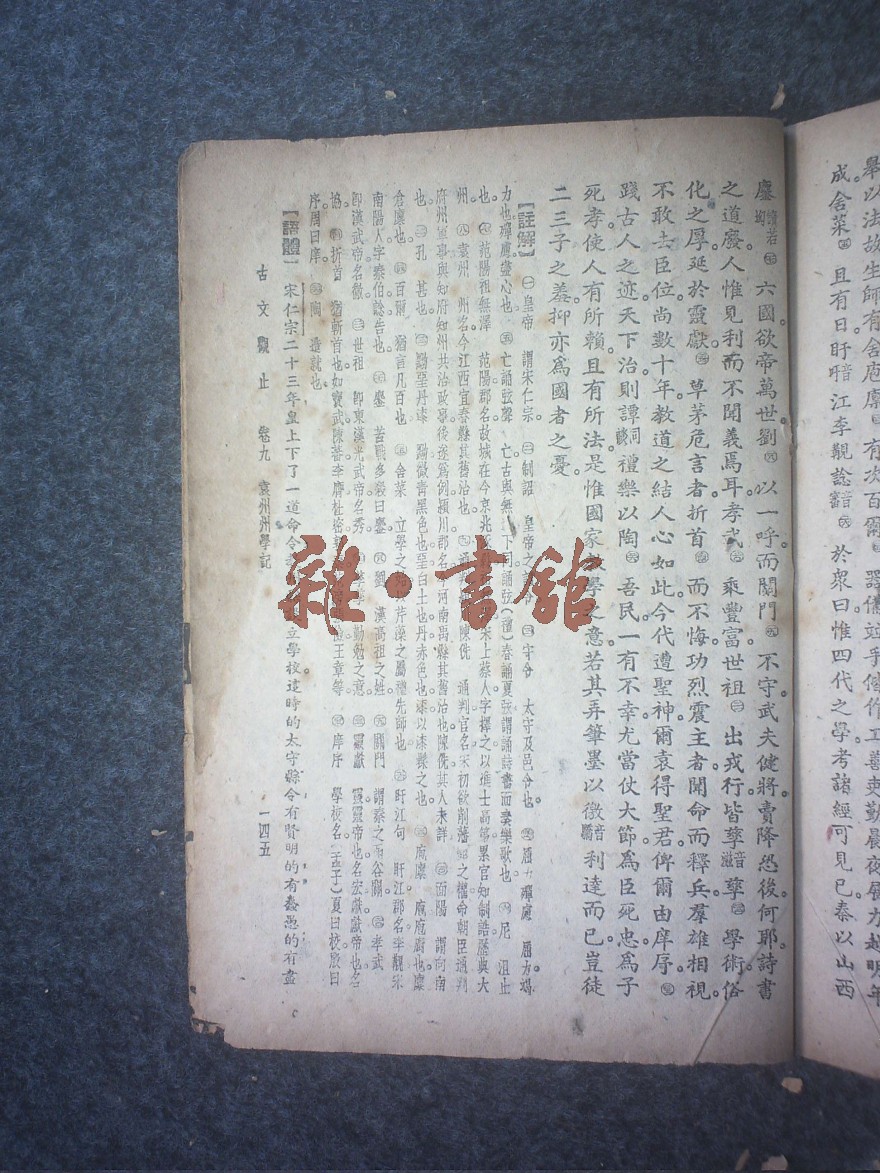 舉以法故生師有舍庖廩有次百爾器備並手偕作工善吏勤晨夜展力越明年
成舍菜且有日盱江李覯諗於眾曰惟四代之學考諸經可見已秦以山西
鏖六國欲帝萬世劉以一呼而關門不守武夫健將賣降恐後何耶詩書
之道廢人惟見利而不聞義焉耳孝武乘豐富世祖出戎行皆孳孳學術俗
化之厚延於靈獻草茅危言者折首而不悔功烈震主者聞命而釋兵羣雄相視
不敢去臣位尚數十年教道之結人心如此今代遭聖神爾袁得聖君俾爾由庠序
踐古人之迹天下治則譚禮樂以陶吾民一有不幸尤當仗大節爲臣死忠爲子
死孝使人有所賴且有所法是惟國家教學之意若其弄筆墨以徼利達而已豈徒
二三子之羞抑亦爲國者之憂
【註解】㊀皇帝 謂宋仁宗 ㊁制詔 皇帝之 ㊂守令 太守及邑令也
力也殫慮盡心也 亡誦弦聲 亡古與無 春誦夏弦謂誦詩書而奏樂歌也 尼 沮止
也 范陽祖無澤 范陽郡名故城在今京兆 宋上蔡人字擇之以進士高第累官知制誥
州 袁州 州名今江西宜春縣其舊治也 陳侁 通判官名宋初欲削藩 之權命朝臣通判
府州軍事與知府知州共治政事 潁川郡名 河南禹縣其舊治也陳侁其人未詳 面陽 謂向南
也 孔 甚也 黝堊丹漆 黝微青黑色也堊白土也丹赤色也漆以漆髹之也
倉廩也 百爾 猶言凡百也 舍菜 立學之 芹藻之屬禮先師也 盱江句 盱江郡名李覯
南陽人字泰伯諗告也 鏖 苦戰多殺曰鏖 劉 漢高祖之姓 關門 謂秦之函谷關 孝武
即漢武帝名徹 世祖 即東漢光武帝名秀 勤勉之意 靈獻 靈靈帝也名宏獻獻帝也名
協 折首 猶斬首也如竇武陳蕃李膺杜密 王章等 庠序 學校名(孟子)夏曰校殷曰
序周曰庠 陶 造就也
【語體】宋仁宗二十三年皇上下了一道命令 立學校這時的太守縣令有賢明的有愚的有盡
古文觀止 卷九 袁州州學記 一四五
雜·書館